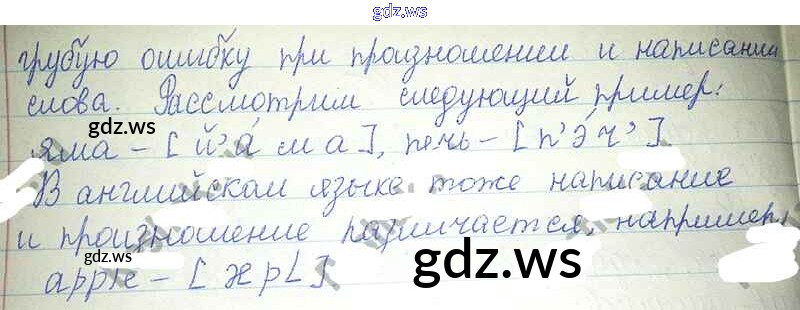 gdz.ws
грубую ошибку при произношении и написании
слова. Рассмотрим следующий пример:
gdz.ws
яма - [й'а́ м а], печь - [п'э́ч']
В английском языке тоже написание
и произношение различается, например,
gdz.ws
gdz.ws
apple - [æpL]